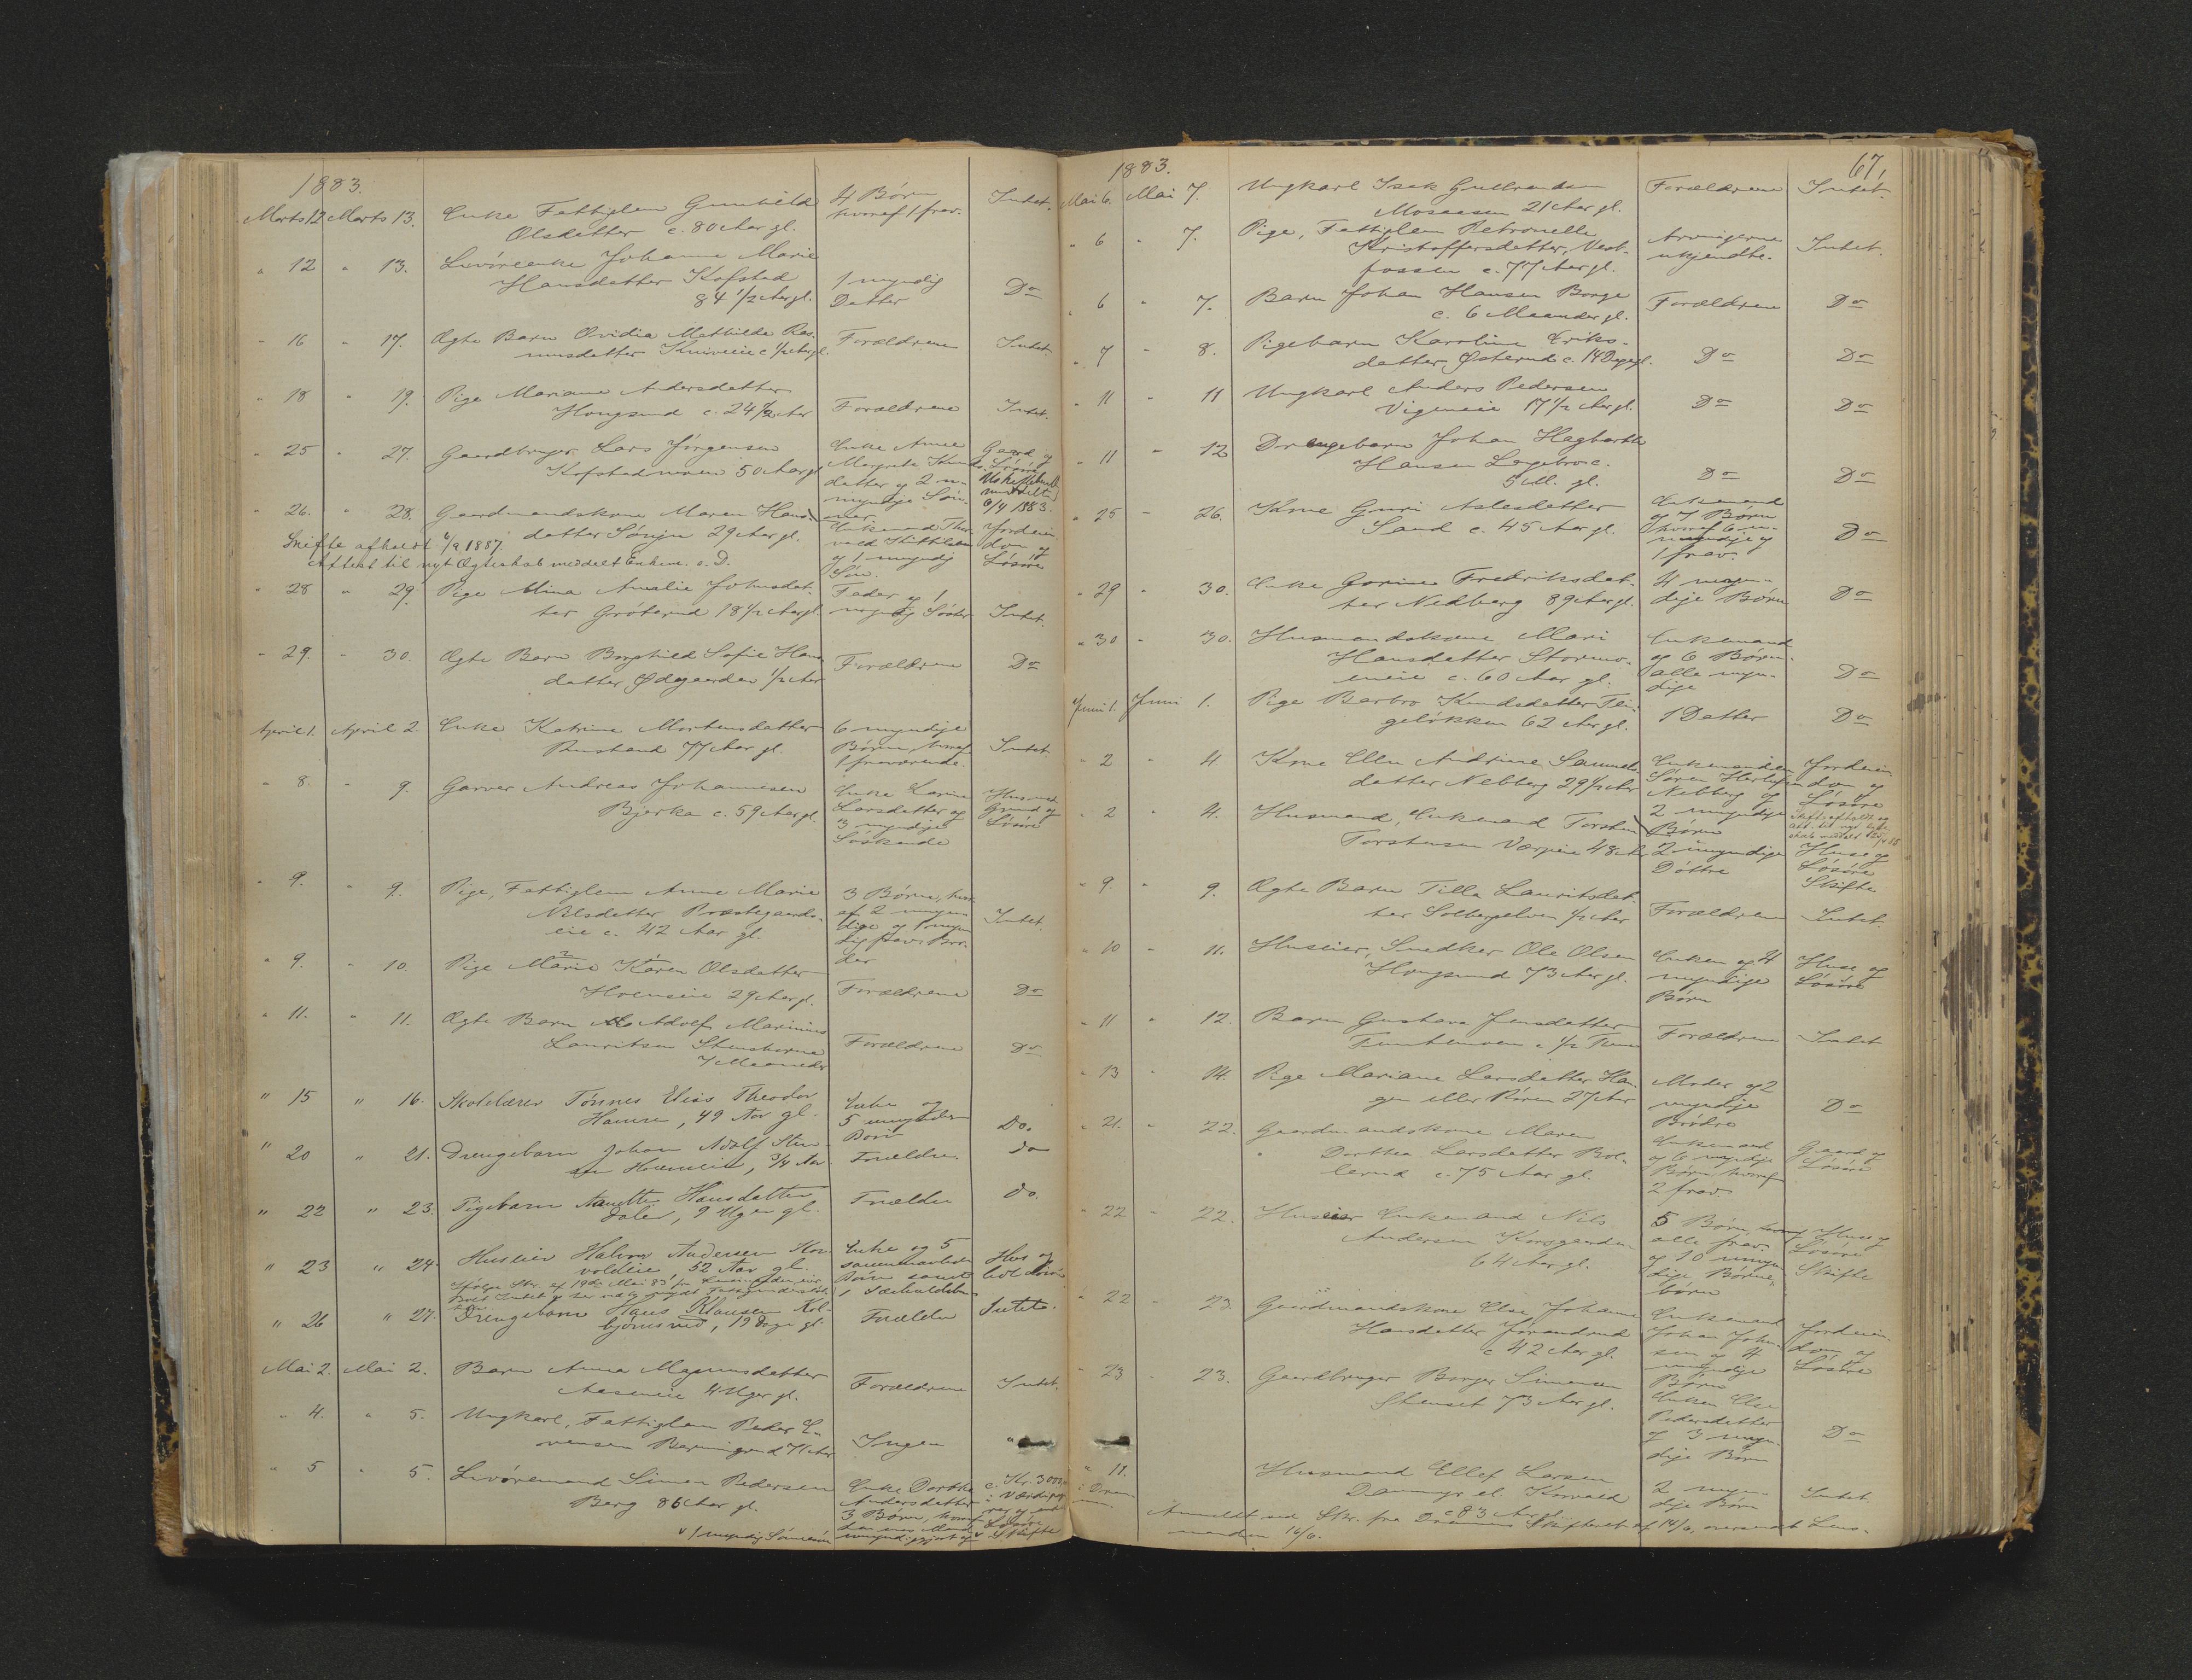 1883.
Marts 12 Marts 13. Enke Fattiglem Gunhild 4 Børn Intet.
Olsdatter c. 80 Aar gl. hvoraf 1 frav.
" 12 " 13. Livøreenke Johanne Marie
Hansdatter Kofstad 1 myndig Do
84 1/2 Aar gl. Datter
" 16 " 17. Ægte Barn Ovidia Mathilde Ras- Forældrene Intet.
musdatter c 1/2 Aar gl.
" 18 " 19. Pige Mariane Andersdatter
Hougsund c. 24 1/2 Aar Forældrene Intet.
" 25 " 27. Gaardbruger Lars Jørgensen Enke Anne Gaard og
Kofstadmoen 50 Aar gl Margrete Knuds- Løsøre
datter og 2 u-
myndige Søn- meddelt
ner 6/4 1883.
" 26. " 28. Gaardmandskone Maren Hans- Enkemand Thor- Jordeien-
datter Sønju 29 Aar gl. vald dom og
Skifte afholdt 6/9 1887 og 1 umyndig Løsøre
Attest til nyt Ægteskab meddelt Enkem. s. D. Søn.
" 28 " 29. Pige Mina Amalie Johnsdat- Fader og 1
ter Grøterud 18 1/2 Aar gl. myndig Søster Intet.
" 29. " 30. Ægte Barn Borghild Sofie Hans- Forældrene Do
datter Ødegaarden 1/2 Aar
April 1. April 2. Enke Katrine Mortensdatter 6 myndige
Rustand 77 Aar gl. Børn, hvoraf Intet.
1 fraværende.
" 8. " 9. Garver Andreas Johannesen Enke Karine Huse med
Bjerka c. 59 Aar gl. Larsdatter og Grund og
3 myndige Løsøre
Søskende
" 9. " 9. Pige, Fattiglem Anne Marie 3 Børn, hvor-
Nilsdatter Præstegaards- af 2 umyn- Intet.
eie c. 42 Aar gl. dige og 1 myn-
dig frav. Bro-
der
" 9. " 10. Pige Marie Karen Olsdatter
Hoenseie 29 Aar gl. Forældrene Do
" 11. " 11. Ægte Barn Adolf Marinius
Lauritsen Forældrene Do
7 Maaneder
" 15 " 16. Skolelærer Tønnes Elias Theodor Enke og
Hamre, 49 Aar gl. 5 umyndige Do.
Børn
" 20 " 21. Drengebarn Johan Adolf
Hoenseie, 3/4 Aar Forældre. do
" 22 " 23. Pigebarn Anette Hansdatter Forældre do.
Dalen, 9 Uger gl.
" 23 " 24 Huseier Halvor Andersen Enke og 5 Hus og
52 Aar gl. Børn samt lidt Løsøre
" 26 " 27. Drengebarn Hans Klausen Kol- Forældre Intet.
bjørnsrud, 19 Dage gl.
Mai 2. Mai 2. Barn Anna Magnusdatter
Aaseneie 4 Uger gl. Forældrene Intet.
" 4. " 5. Ungkarl, Fattiglem Peder E-
vensen 71 Aar Ingen "
" 5 " 5. Livøremand Simen Pedersen Enke Dorthe c. Kr. 3000
Berg 86 Aar gl. Andersdatter i Værdipapi-
3 Børn, hvoraf rer og
Løsøre
1 myndig Sønnesøn Skifte
67.
1883.
Mai 6. Mai 7. Ungkarl Isak Gulbrandsen Forældrene Intet.
Moseasen 21 Aar gl.
" 6 " 7. Pige, Fattiglem Petronelle Arvingerne Intet.
Kristoffersdatter, Vest- ukjendte.
fossen c. 77 Aar gl.
" 6 " 7. Barn Johan Hansen Borge Forældrene Do
c. 6 Maaneder gl.
" 7 " 8. Pigebarn Karoline Eriks-
datter Østerud c. 14 Dage gl. Do Do
" 11 " 11 Ungkarl Anders Pedersen
Vigeneie 17 1/2 Aar gl. Do Do
" 11 " 12 Drengebarn Johan Hagbarth
Hansen Løgebro c.
5 M. gl. Do Do
" 25 " 26. Kone Guri Aslesdatter Enkemand
Sand c. 45 Aar gl. og 7 Børn
hvoraf 6 u- Do
myndige og
1 frav.
" 29 " 30. Enke Gorine Fredriksdat- 4 myn-
ter Nedberg 89 Aar gl. dige Børn Do
" 30 " 30. Husmandskone Mari Enkemand
Hansdatter Stormo- og 6 Børn
eneie c. 60 Aar gl. alle myn- Do
dige
Juni 1. Juni 1. Pige Barbro Knudsdatter Tei-
geløkken 62 Aar gl. 1 Datter Do
" 2 " 4. Kone Ellen Andrine Samuels- Enkemanden Jordeien-
datter Nebberg 29 1/2 Aar Søren dom og
Nebberg og Løsøre
2 umyndige
Børn
" 2 " 4. Husmand, Enkemand Torsten
Torstensen 48 Aar 2 umyndige Huse og
Døttre Løsøre
Skifte
" 9. " 9. Ægte Barn Tilla Lauritsdat-
ter Solbergelven 1/2 Aar Forældrene Intet.
" 10 " 11. Huseier, Snedker Ole Olsen Enken og 4 Huse og
Hougsund 73 Aar gl. myndige Løsøre
Børn
" 11 " 12. Barn Gustava Jensdatter
c 1/2 Time Forældrene Intet
" 13 " 14. Pige Mariane Larsdatter Hau- Moder og 2
gen eller Røren 27 Aar myndige Do
Brødre
" 21. " 22. Gaardmandskone Maren Enkemand Gaard og
Dorthea Larsdatter Bol- og 6 myndige Løsøre
lerud c. 75 Aar gl. Børn, hvoraf
2 frav.
" 22 " 22. Huseier Enkemand Nils 5 Børn, Huse og
Andersen Korsgaarden alle frav. Løsøre
64 Aar gl. og 10 umyn- Skifte
dige Børne-
børn
" 22 " 23. Gaardmandskone Else Johanne Enkemand
Hansdatter c 42 Aar gl. Johan John- Jordeien-
sen og 4 dom og
umyndige Løsøre
Børn
" 23 " 23. Gaardbruger Borger Simensen Enken Else
Stenset 73 Aar gl. Pedersdatter
og 3 myn- Do
dige Børn
" 11. Husmand Ellef Larsen
i Dram- Dammyr el. Korvald 2 myn- Intet.
men. c 83 Aar gl. dige Børn
Anmeldt ved Skr. fra Drammens Skifteret af 14/6, oversendt Lens-
manden 16/6.